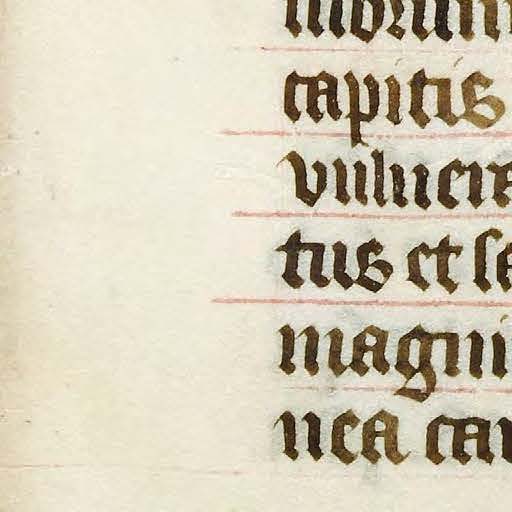 capitis
vulner
tus et se
magni
nea car